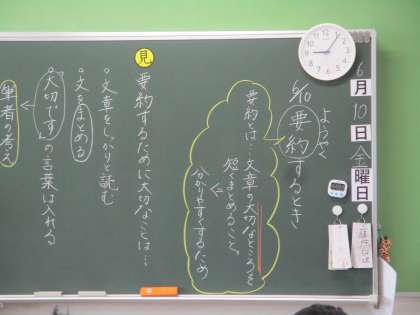 6月10日金曜日
6/10 要約するとき
ようやく
要約とは…文章の大切なところを
短くまとめること。
分かりやすくするため
見 要約するために大切なことは…
。文章をしっかりと読む
。文をまとめる
。大切です の言葉は入れる
筆者の考え